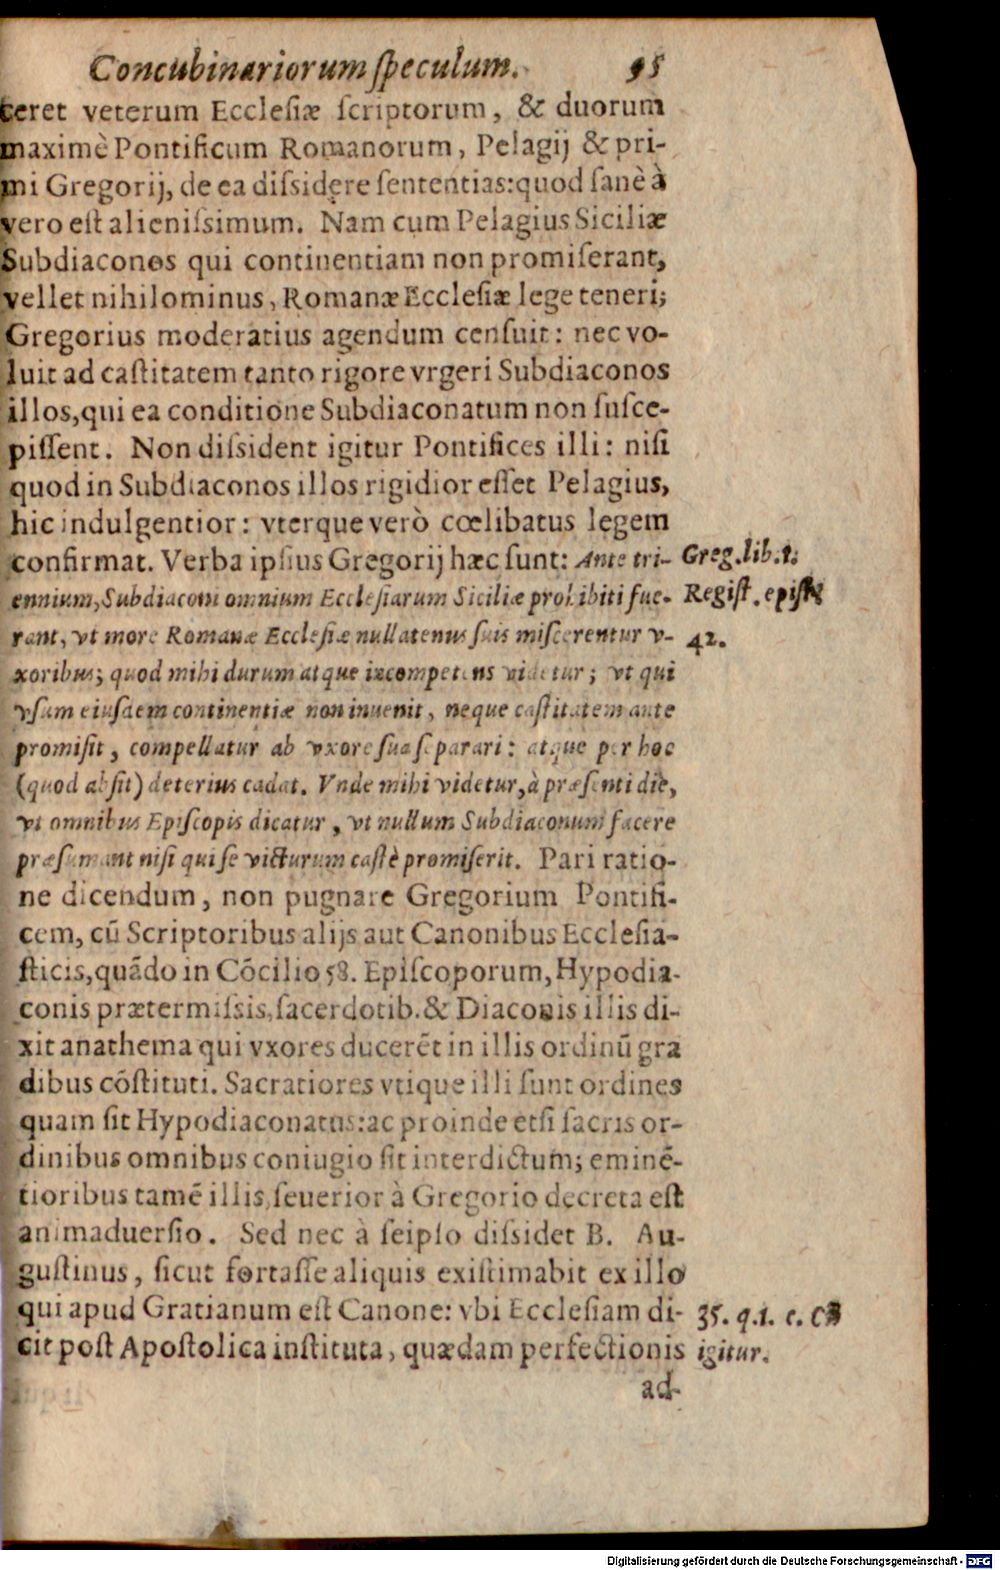 Concubinariorum ſpeculum. 95
ceret veterum Eccleſiæ ſcriptorum, & duorum
maximè Pontificum Romanorum, Pelagij & pri-
mi Gregorij, de ea diſsidere ſententias: quod ſanè à
vero eſt alieniſsimum. Nam cum Pelagius Siciliæ
Subdiaconos qui continentiam non promiſerant,
vellet nihilominus, Romanæ Eccleſiæ lege teneri;
Gregorius moderatius agendum cenſuit: nec vo-
luit ad caſtitatem tanto rigore vrgeri Subdiaconos
illos, qui ea conditione Subdiaconatum non ſuſce-
piſſent. Non diſsident igitur Pontifices illi: niſi
quod in Subdiaconos illos rigidior eſſet Pelagius,
hic indulgentior: vterque verò cœlibatus legem
confirmat. Verba ipſius Gregorij hæc ſunt: Ante tri-
ennium, Subdiaconi omnium Eccleſiarum Siciliæ prohibiti fue-
rant, vt more Romanæ Eccleſiæ nullatenus ſuis miſcerentur v-
xoribus; quod mihi durum atque incompetens videtur; vt qui
vſum eiuſdem continentiæ non inuenit, neque caſtitatem ante
promiſit, compellatur ab vxore ſua ſeparari: atque per hoc
(quod abſit) deterius cadat. Vnde mihi videtur, à præſenti die,
vt omnibus Epiſcopis dicatur, vt nullum Subdiaconum facere
præſumant niſi qui ſe victurum caſtè promiſerit. Pari ratio-
ne dicendum, non pugnare Gregorium Pontifi-
cem, cū Scriptoribus alijs aut Canonibus Eccleſia-
ſticis, quādo in Cōcilio 58. Epiſcoporum, Hypodia-
conis prætermiſsis, ſacerdotib. & Diaconis illis di-
xit anathema qui vxores ducerēt in illis ordinū gra
dibus cōſtituti. Sacratiores vtique illi ſunt ordines
quam ſit Hypodiaconatus: ac proinde etſi ſacris or-
dinibus omnibus coniugio ſit interdictum; eminē-
tioribus tamē illis, ſeuerior à Gregorio decreta eſt
animaduerſio. Sed nec à ſeipſo diſsidet B. Au-
guſtinus, ſicut fortaſſe aliquis exiſtimabit ex illo
qui apud Gratianum eſt Canone: vbi Eccleſiam di-
cit poſt Apoſtolica inſtituta, quædam perfectionis
ad-
Greg. lib. 1.
Regiſt. epiſt.
42.
35. q. 1. c.
igitur.
Digitalisierung gefördert durch die Deutsche Forschungsgemeinschaft - DFG